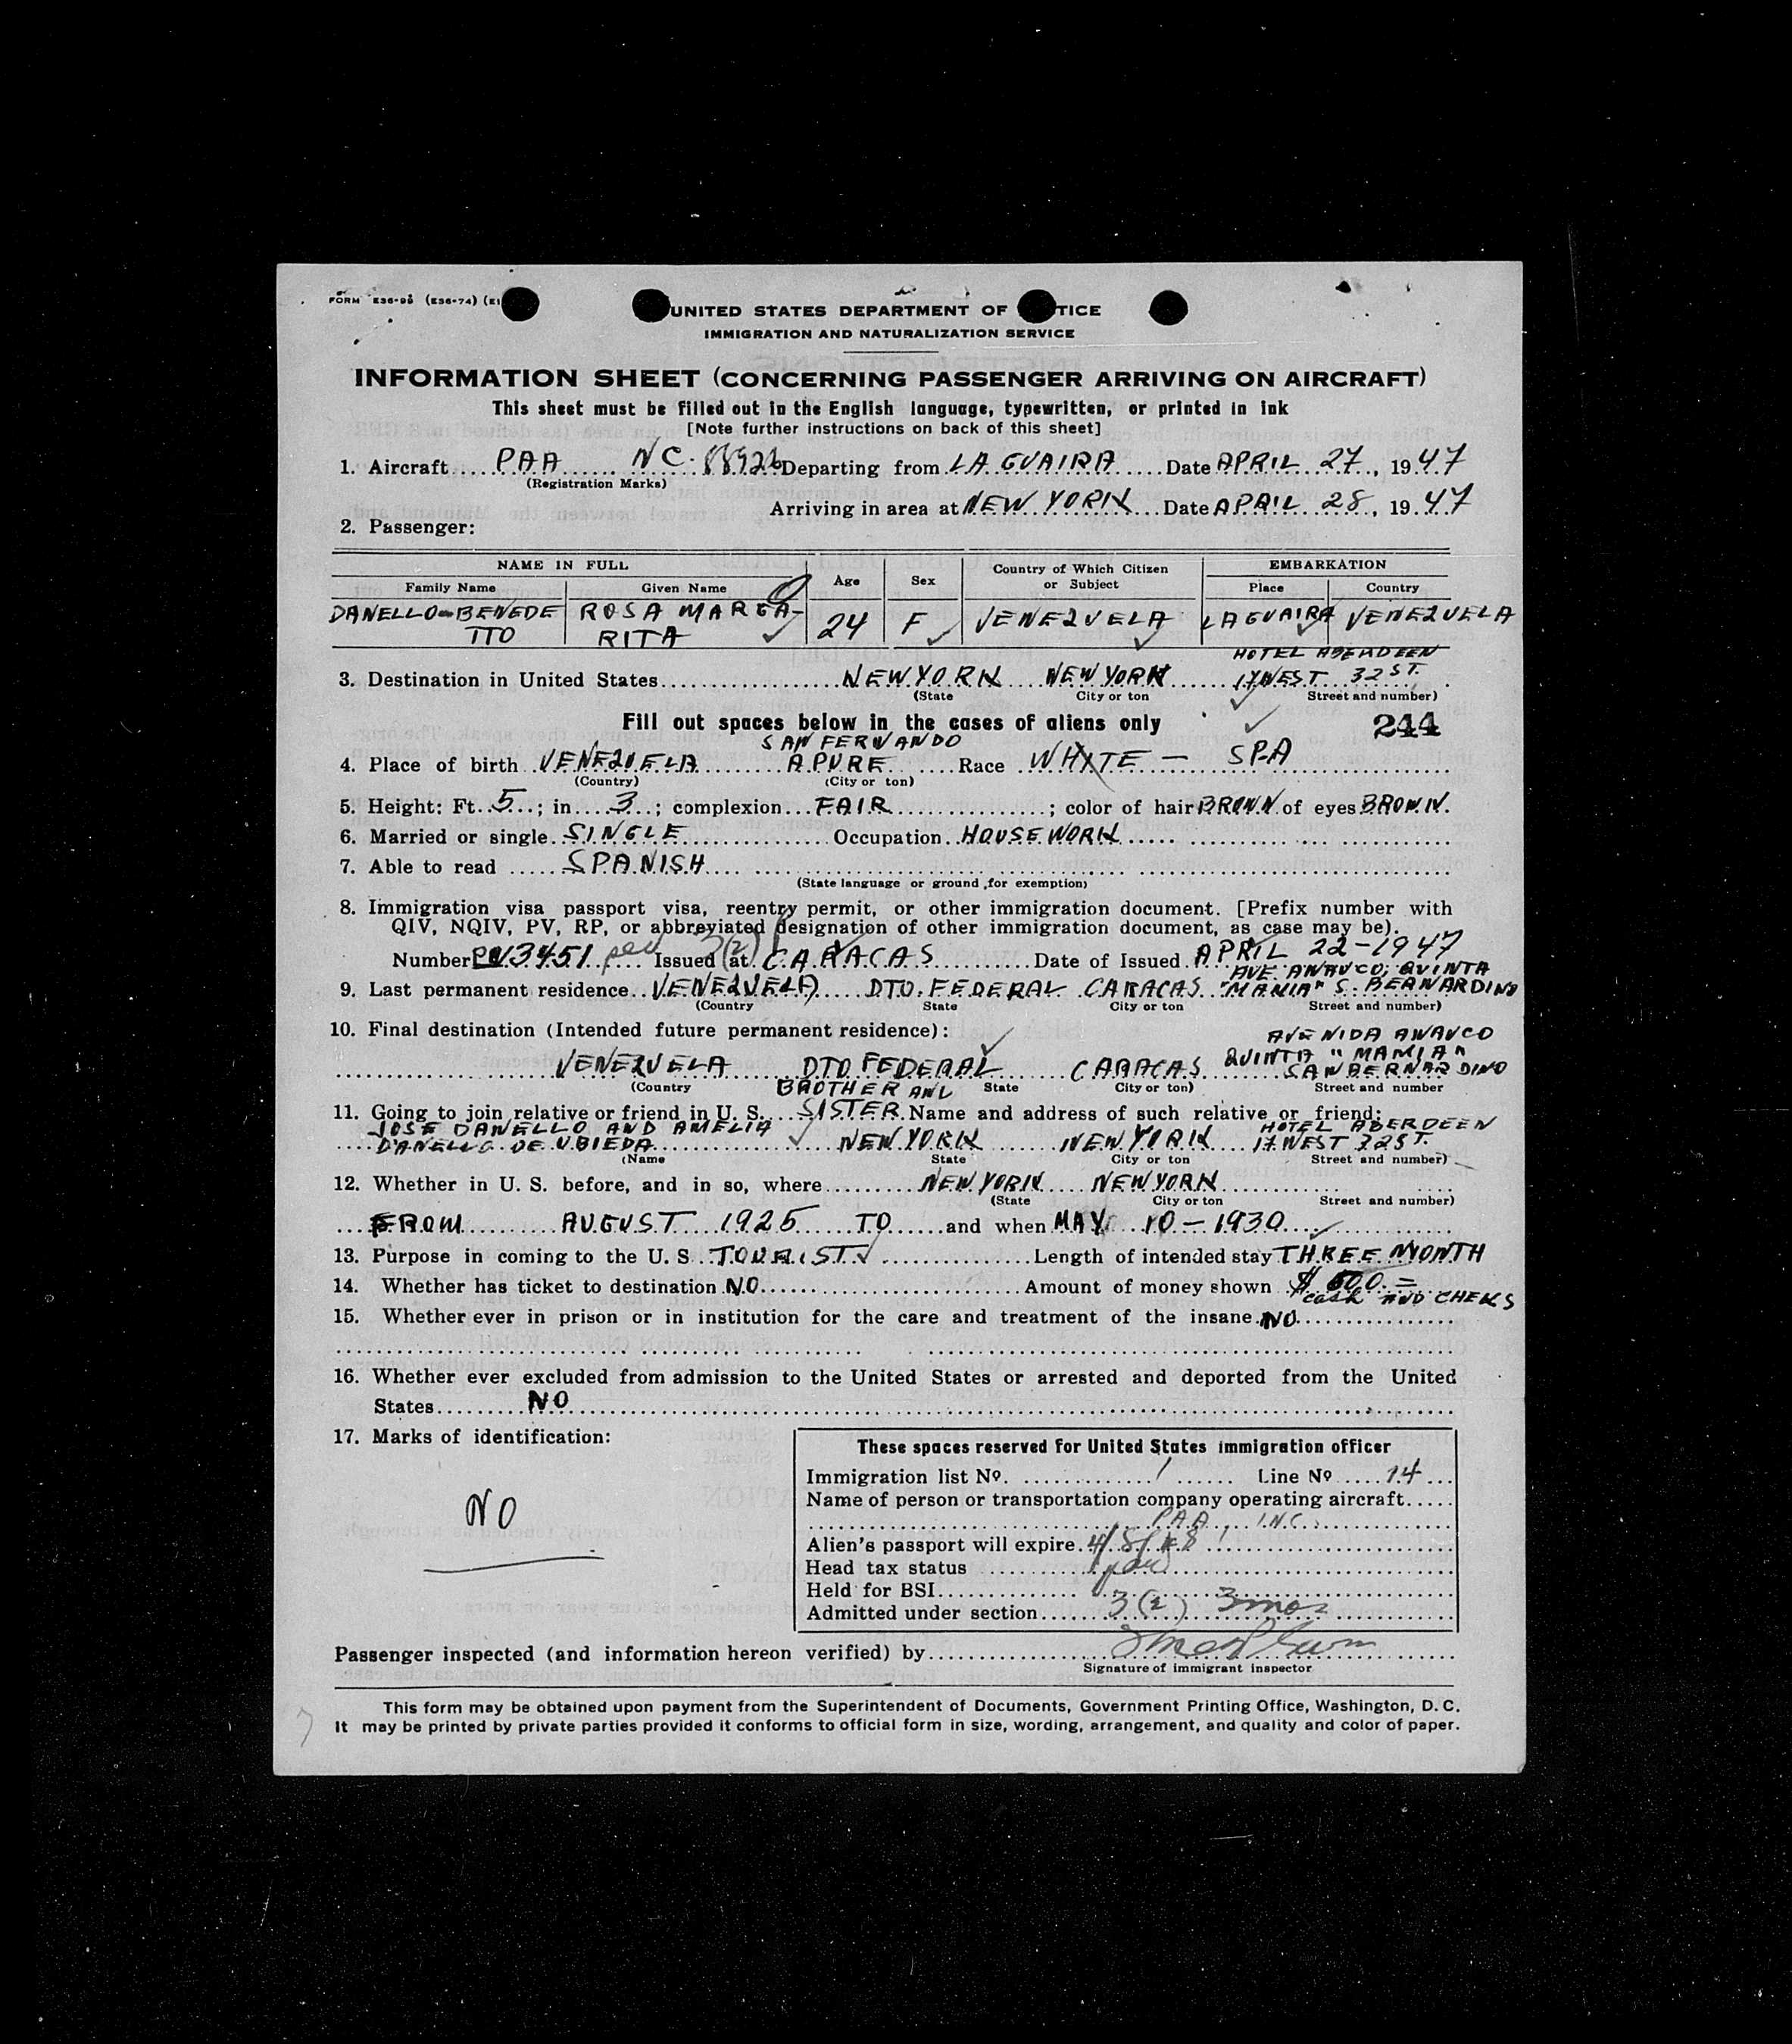 FORM E36-98 (E36-74) (E1
UNITED STATES DEPARTMENT OF TICE
IMMIGRATION AND NATURALIZATION SERVICE
INFORMATION SHEET (CONCERNING PASSENGER ARRIVING ON AIRCRAFT)
This sheet must be filled out in the English language, typewritten, or printed in ink
[Note further instructions on back of this sheet]
1. Aircraft PAA NC-88926 Departing from LA GUAIRA Date APRIL 27, 1947
(Registration Marks)
Arriving in area at NEW YORK Date APRIL 28, 1947
2. Passenger:
NAME IN FULL Age Sex Country of Which Citizen or Subject EMBARKATION
Family Name Given Name Place Country
DANELLO-BENEDE ROSA MARGA- 24 F VENEZUELA LAGUAIRA VENEZUELA
TTO RITA
HOTEL ABERDEEN
3. Destination in United States NEW YORK NEW YORK 17 WEST 32 ST.
(State City or ton Street and number)
Fill out spaces below in the cases of aliens only 244
SAN FERNANDO
4. Place of birth VENEZUELA APURE Race WHITE - SPA
(Country) (City or ton)
5. Height: Ft. 5; in 3; complexion FAIR; color of hair BROWN of eyes BROWN.
6. Married or single SINGLE Occupation HOUSEWORK
7. Able to read SPANISH
(State language or ground for exemption)
8. Immigration visa passport visa, reentry permit, or other immigration document. [Prefix number with
QIV, NQIV, PV, RP, or abbreviated designation of other immigration document, as case may be).
Number PV 3451 3(2) Issued at CARACAS Date of Issued APRIL 22-1947
AVE. ANAUCO, QUINTA
9. Last permanent residence VENEZUELA DTO. FEDERAL CARACAS "MANIA" S. BERNARDINO
(Country State City or ton Street and number)
10. Final destination (Intended future permanent residence):
AVENIDA ANAUCO
QUINTA "MAMIA"
VENEZUELA DTO FEDERAL CARACAS SAN BERNARDINO
(Country State City or ton) Street and number
BROTHER AND
11. Going to join relative or friend in U. S. SISTER Name and address of such relative or friend:
JOSE DANELLO AND AMELIA HOTEL ABERDEEN
DANELLO DE UBIEDA NEW YORK NEW YORK 17 WEST 32 ST.
(Name State City or ton Street and number)
12. Whether in U. S. before, and in so, where NEW YORK NEW YORK
(State City or ton Street and number)
FROM AUGUST 1925 TO and when MAY 10-1930
13. Purpose in coming to the U. S TOURIST Length of intended stay THREE MONTH
14. Whether has ticket to destination NO Amount of money shown $ 500.=
cash AND CHEKS
15. Whether ever in prison or in institution for the care and treatment of the insane NO
16. Whether ever excluded from admission to the United States or arrested and deported from the United
States NO
17. Marks of identification:
NO
These spaces reserved for United States immigration officer
Immigration list No. 1 Line No 14
Name of person or transportation company operating aircraft
PAA INC.
Alien's passport will expire 4/8/48
Head tax status
Held for BSI
Admitted under section 3(2) 3 mos
Passenger inspected (and information hereon verified) by
Signature of immigrant inspector
This form may be obtained upon payment from the Superintendent of Documents, Government Printing Office, Washington, D. C.
It may be printed by private parties provided it conforms to official form in size, wording, arrangement, and quality and color of paper.